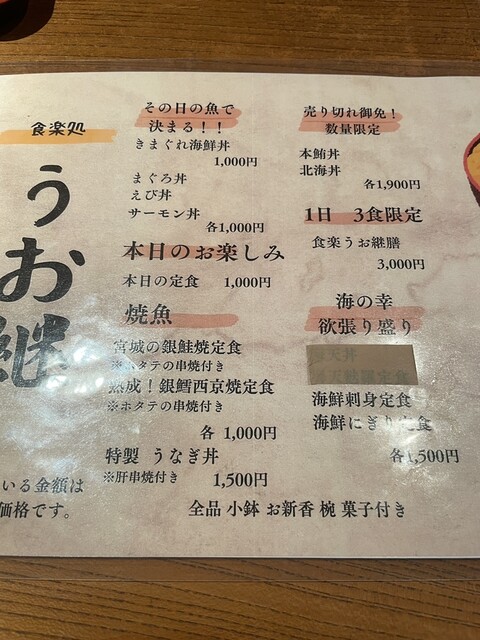 食楽処
うお継
いる金額は
価格です。
その日の魚で
決まる！！
きまぐれ海鮮丼
1,000円
まぐろ丼
えび丼
サーモン丼
各1,000円
本日のお楽しみ
本日の定食 1,000円
焼魚
宮城の銀鮭焼定食
※ホタテの串焼付き
熟成！銀鱈西京焼定食
※ホタテの串焼付き
各 1,000円
特製 うなぎ丼
※肝串焼付き 1,500円
売り切れ御免！
数量限定
本鮪丼
北海丼
各1,900円
1日 3食限定
食楽うお継膳
3,000円
海の幸
欲張り盛り
天丼
海鮮刺身定食
海鮮にぎり定食
各1,500円
全品 小鉢 お新香 椀 菓子付き